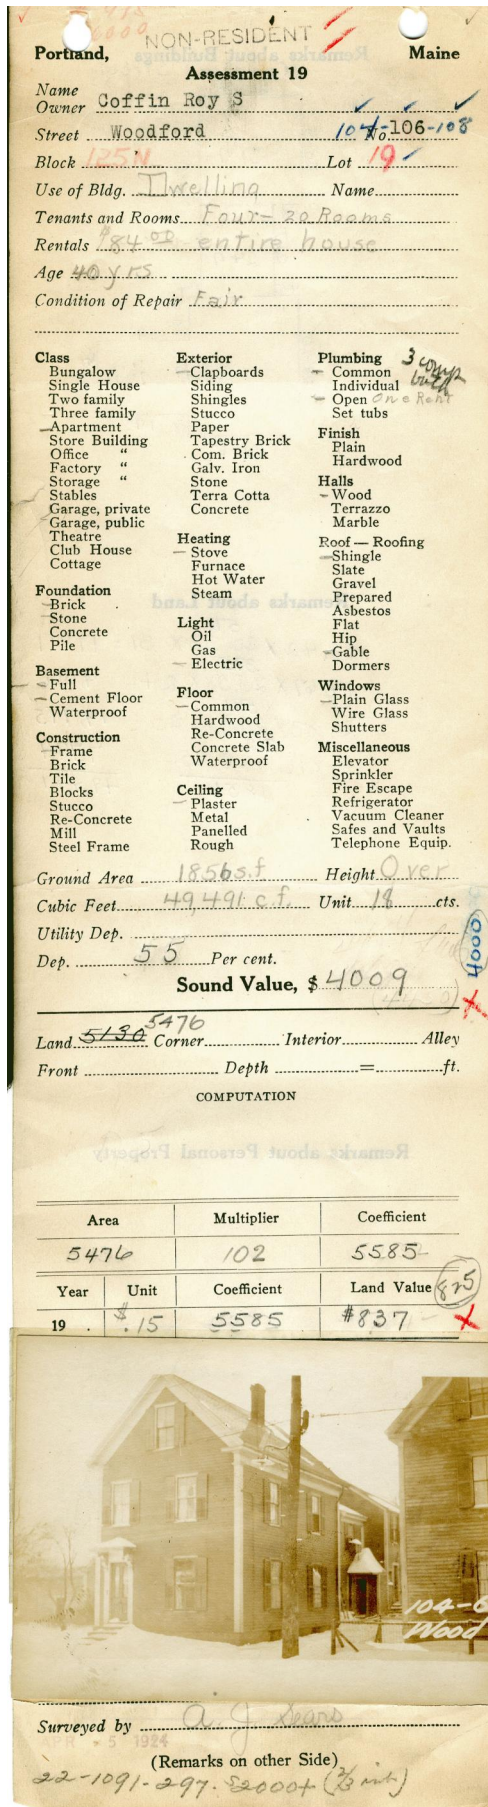 NON-RESIDENT
Portland, Maine
Assessment 19
Name
Owner Coffin Roy S
Street Woodford 104- No. 106-108
Block 125N Lot 19
Use of Bldg. Dwelling Name
Tenants and Rooms Four - 20 Rooms
Rentals $84.00 entire house
Age 40 yrs
Condition of Repair Fair
Class
Bungalow
Single House
Two family
Three family
Apartment
Store Building
Office "
Factory "
Storage "
Stables
Garage, private
Garage, public
Theatre
Club House
Cottage
Foundation
Brick
Stone
Concrete
Pile
Basement
Full
Cement Floor
Waterproof
Construction
Frame
Brick
Tile
Blocks
Stucco
Re-Concrete
Mill
Steel Frame
Exterior
Clapboards
Siding
Shingles
Stucco
Paper
Tapestry Brick
Com. Brick
Galv. Iron
Stone
Terra Cotta
Concrete
Heating
Stove
Furnace
Hot Water
Steam
Light
Oil
Gas
Electric
Floor
Common
Hardwood
Re-Concrete
Concrete Slab
Waterproof
Ceiling
Plaster
Metal
Panelled
Rough
Plumbing 3 comp
Common bath
Individual
Open One Rent
Set tubs
Finish
Plain
Hardwood
Halls
Wood
Terrazzo
Marble
Roof — Roofing
Shingle
Slate
Gravel
Prepared
Asbestos
Flat
Hip
Gable
Dormers
Windows
Plain Glass
Wire Glass
Shutters
Miscellaneous
Elevator
Sprinkler
Fire Escape
Refrigerator
Vacuum Cleaner
Safes and Vaults
Telephone Equip.
Ground Area 1856 s.f Height Over
Cubic Feet 49,491 c.f. Unit 18 cts.
Utility Dep.
Dep. 55 Per cent.
4000
Sound Value, $ 4009
Land 5130 5476 Corner Interior Alley
Front Depth = ft.
COMPUTATION
Remarks about Personal Property
Area Multiplier Coefficient
5476 102 5585
Year Unit Coefficient Land Value 825
19 $.15 5585 $837
104-6
Wood
Surveyed by A J Sears
APR 5 1924
(Remarks on other Side)
22-1091-297-$2000+